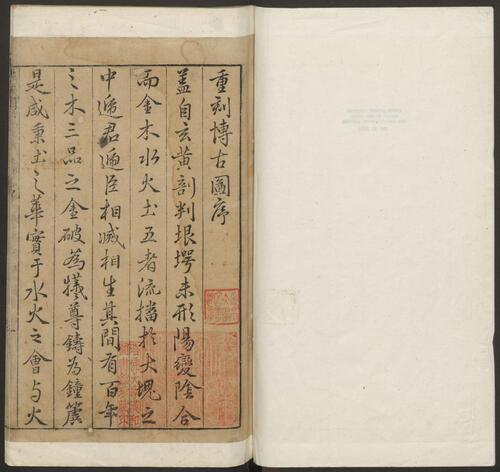 重刻博古圖序
蓋自玄黃剖判垠堮未形陽變陰合
而金木水火土五者流播於大塊之
中遞君遞臣相滅相生其間有百年
之木三品之金破為犧尊鑄為鐘簴
是咸秉土之華實于水火之會与火